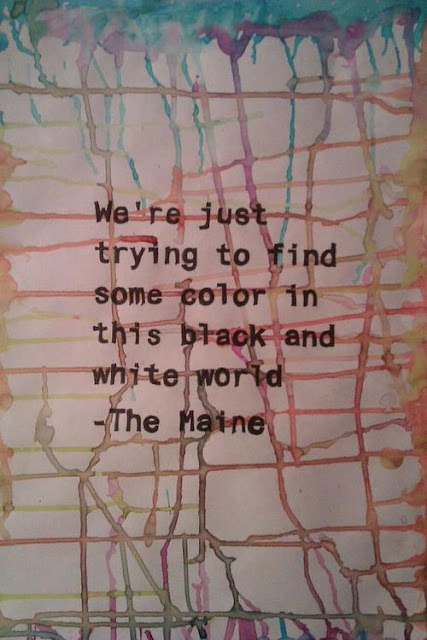 We're just
trying to find
some color in
this black and
white world
-The Maine